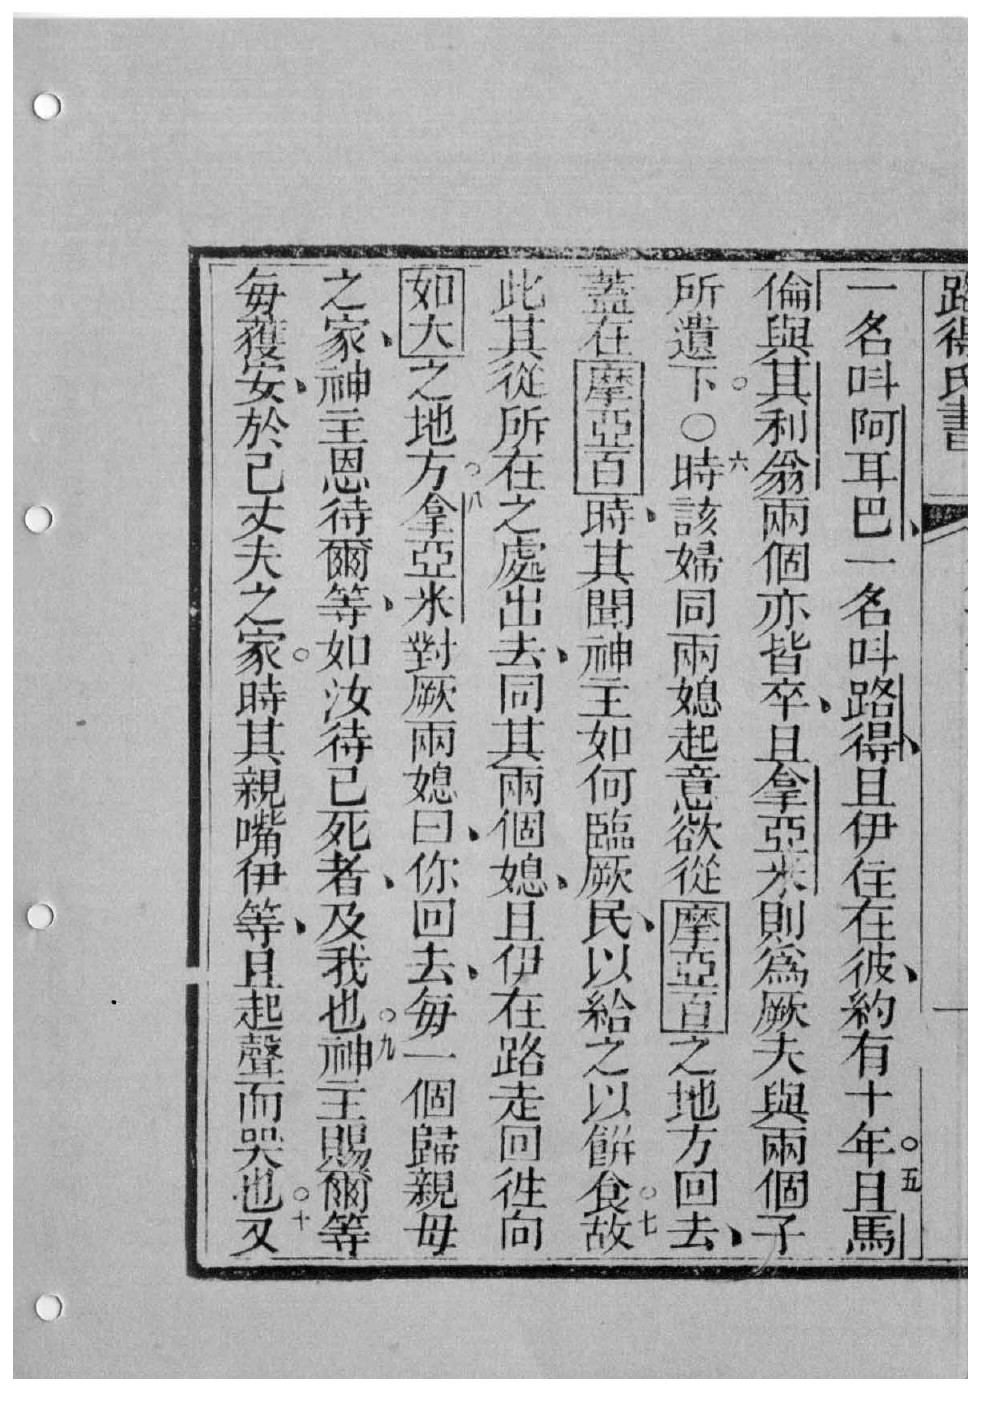 路得氏書
一名呌阿耳巴、一名呌路得、且伊住在彼、約有十年。五且馬
倫與其利翁兩個亦皆卒、且拿亞米則爲厥夫與兩個子
所遺下。〇六時該婦同兩媳起意欲從摩亞百之地方回去、
蓋在摩亞百時、其聞神主如何臨厥民、以給之以餅食。七故
此其從所在之處出去、同其兩個媳、且伊在路走回徃向
如大之地方。八拿亞米對厥兩媳曰、你回去、每一個歸親母
之家、神主恩待爾等、如汝待已死者、及我也。九神主賜爾等
每獲安、於己丈夫之家。時其親嘴伊等、且起聲而哭也。十又